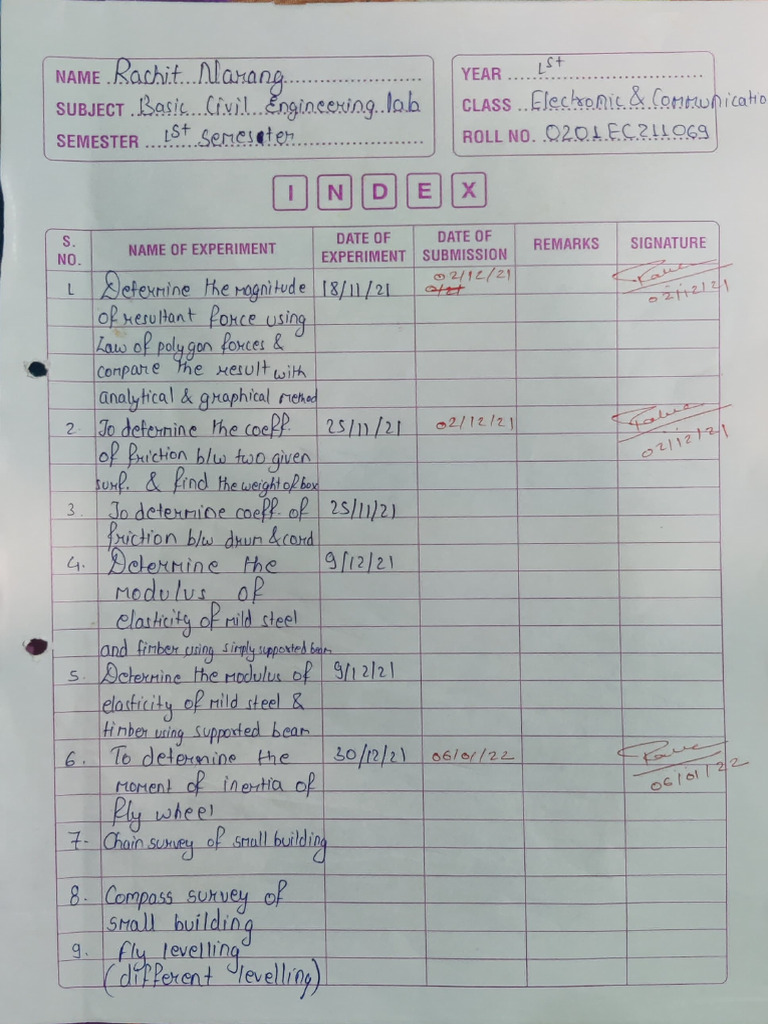 NAME Rachit Narang
YEAR Ist
SUBJECT Basic Civil Engineering lab
CLASS Electronic & Communicatio
SEMESTER Ist semester
ROLL NO. 0201EC211069
INDEX
S. NO. NAME OF EXPERIMENT DATE OF EXPERIMENT DATE OF SUBMISSION REMARKS SIGNATURE
1. Determine the magnitude 18/11/21 02/12/21
of resultant force using 02/12/21
Law of polygon forces &
compare the result with
analytical & graphical method
2. To determine the coeff. 25/11/21 02/12/21
of friction b/w two given 02/12/21
surf. & find the weight of box
3. To determine coeff. of 25/11/21
friction b/w drum & cord
4. Determine the 9/12/21
modulus of
elasticity of mild steel
and timber using simply supported beam
5. Determine the modulus of 9/12/21
elasticity of mild steel &
timber using supported beam
6. To determine the 30/12/21 06/01/22
moment of inertia of 06/01/22
fly wheel
7- Chain survey of small building
8. Compass survey of
small building
9. fly levelling
(different levelling)